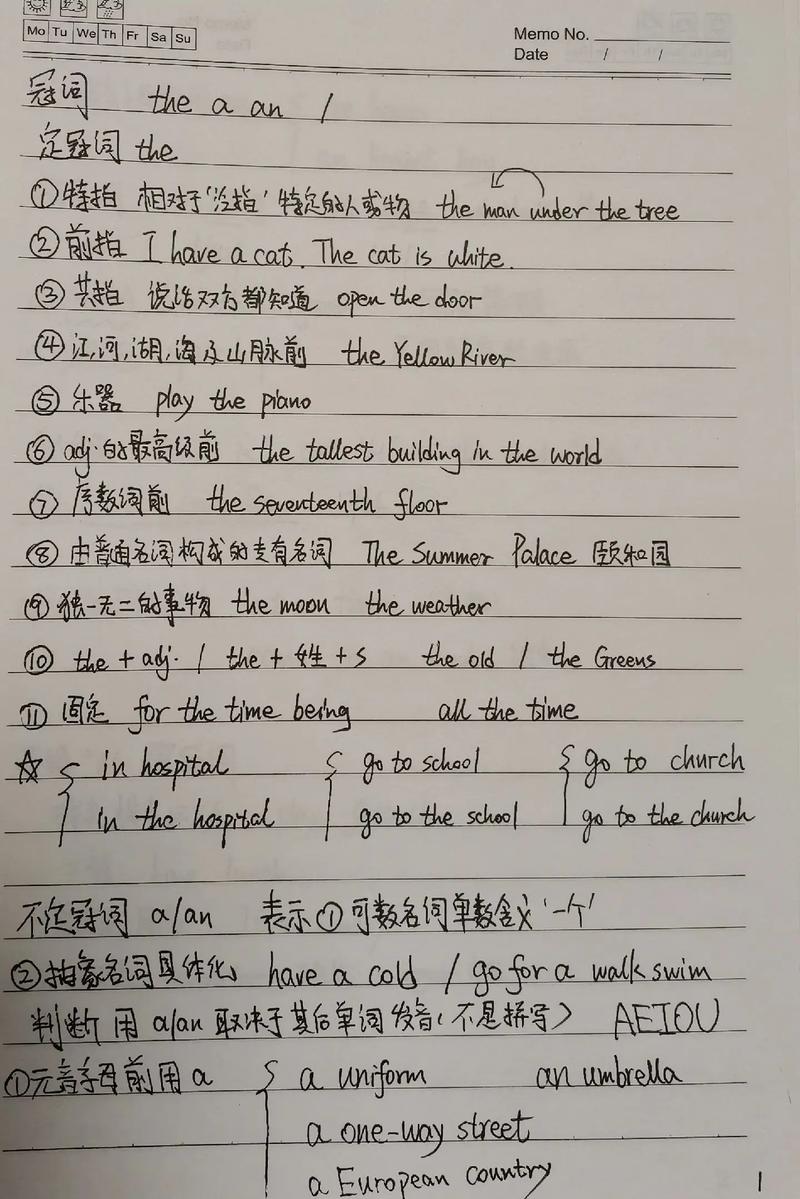 Mo Tu We Th Fr Sa Su
Memo No.
Date / /
冠词 the a an /
定冠词 the
①特指 相对于'泛指' 特定的人或物 the man under the tree
②前指 I have a cat. The cat is white.
③共指 说话双方都知道 open the door
④江,河,湖,海及山脉前 the Yellow River
⑤乐器 play the piano
⑥adj.的最高级前 the tallest building in the world
⑦序数词前 the seventeenth floor
⑧由普通名词构成的专有名词 The Summer Palace 颐和园
⑨独一无二的事物 the moon the weather
⑩ the + adj. / the + 姓 + s the old / the Greens
⑪固定 for the time being all the time
☆ { in hospital { go to school { go to church
in the hospital go to the school go to the church
不定冠词 a/an 表示①可数名词单数含义'一个'
②抽象名词具体化 have a cold / go for a walk swim
判断用 a/an 取决于其后单词发音(不是拼写) AEIOU
①元音字母前用 a { a uniform an umbrella
a one-way street
a European country
1